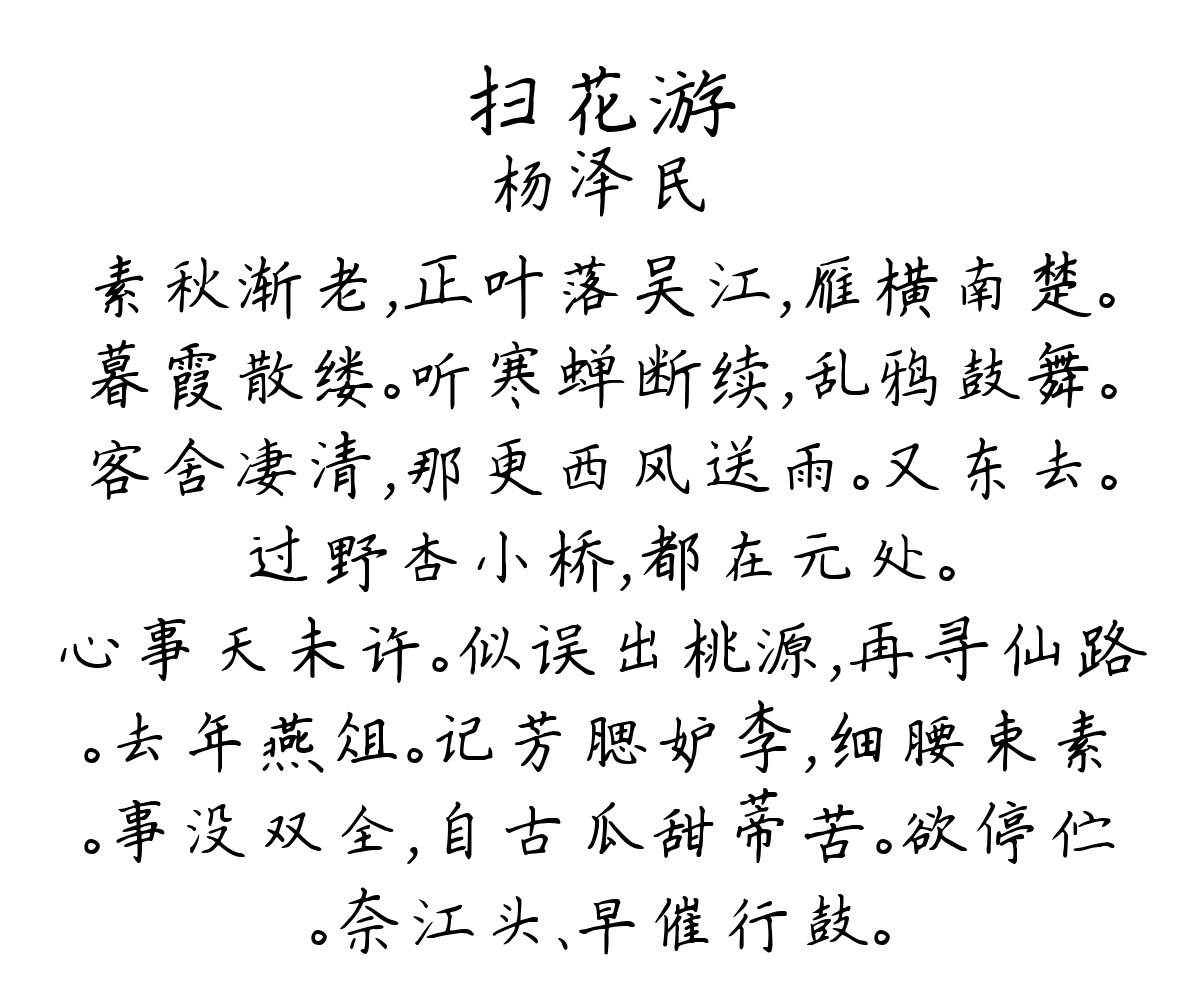 扫花游
杨泽民
素秋渐老,正叶落吴江,雁横南楚。
暮霞散缕。听寒蝉断续,乱鸦鼓舞。
客舍凄清,那更西风送雨。又东去。
过野杏小桥,都在元处。
心事天未许。似误出桃源,再寻仙路
。去年燕俎。记芳腮妒李,细腰束素
。事没双全,自古瓜甜蒂苦。欲停伫
。奈江头、早催行鼓。